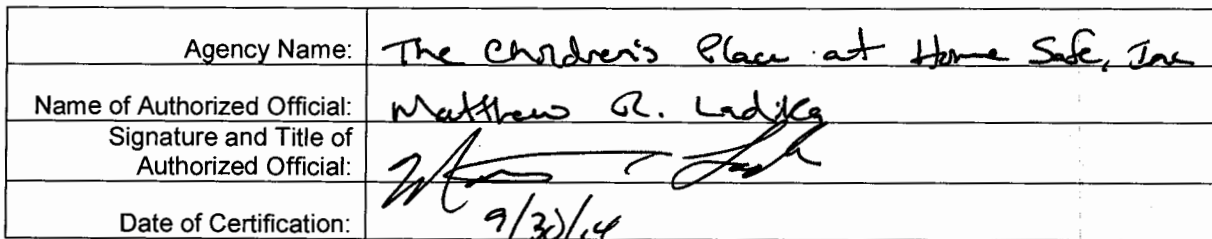 Agency Name: The Children's Place at Home Safe, Inc
Name of Authorized Official: Matthew R. Ladika
Signature and Title of
Authorized Official:
Date of Certification: 9/30/14